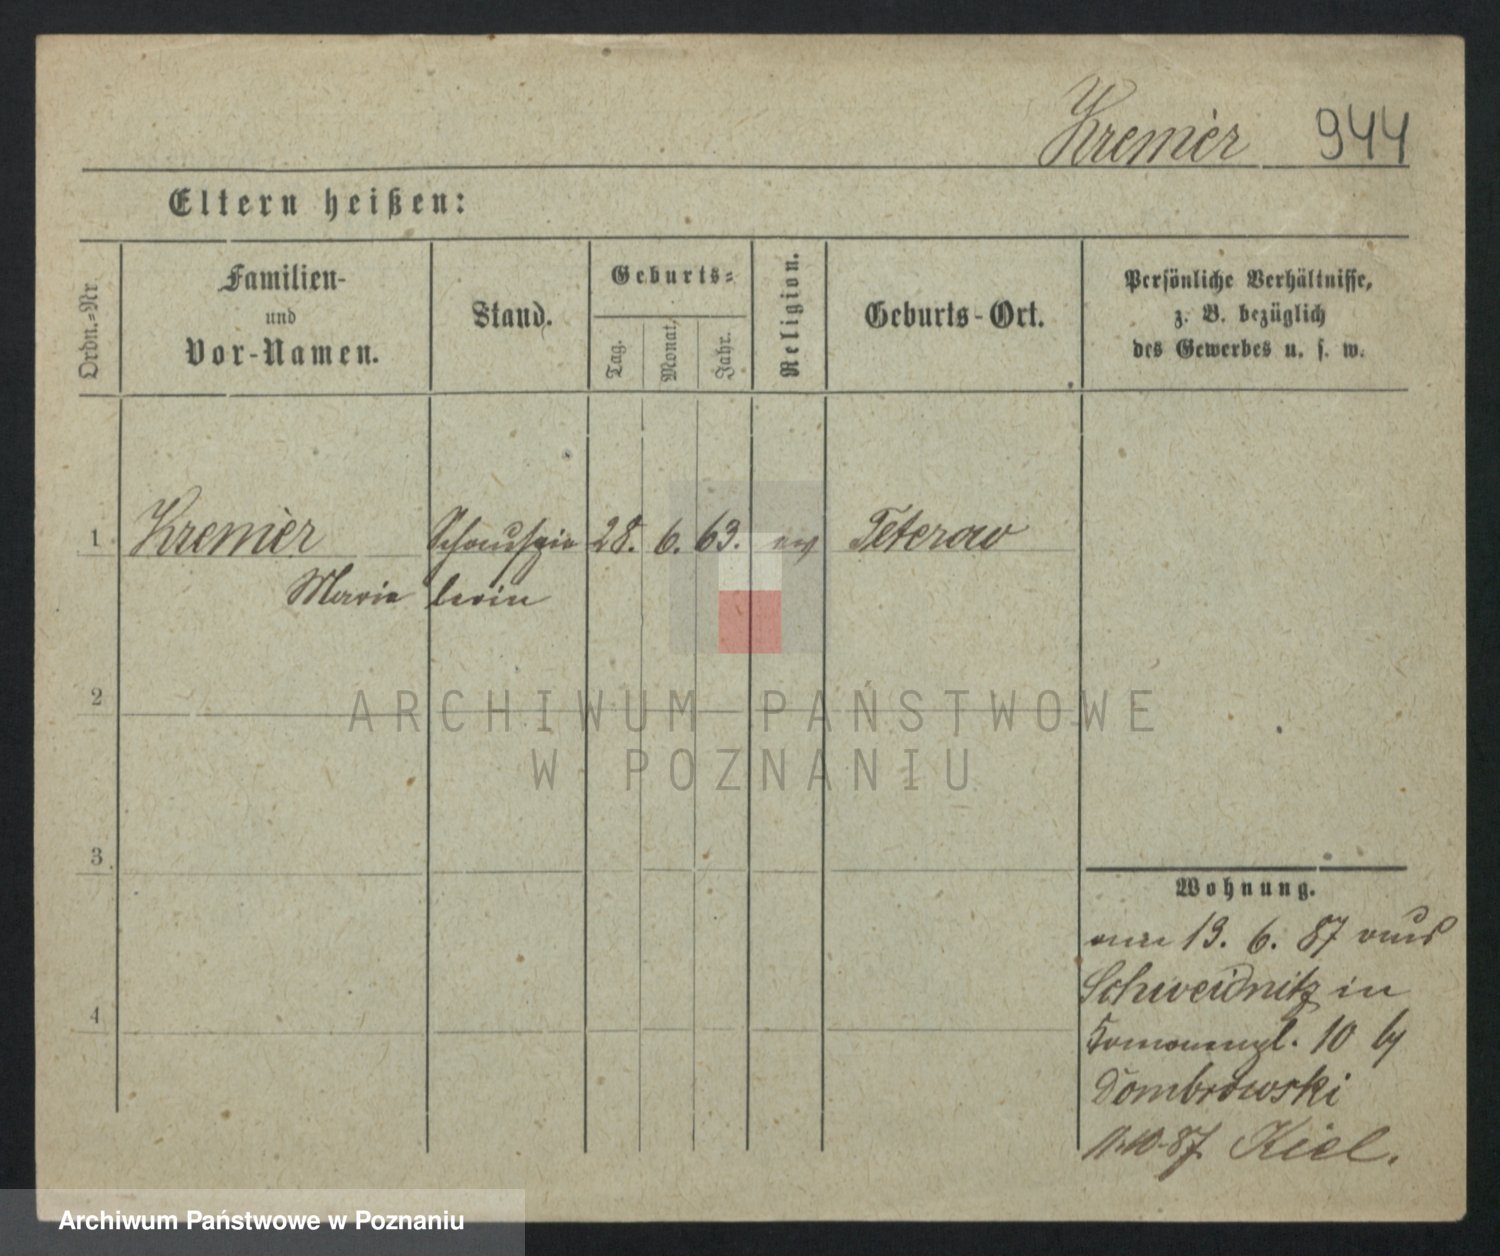 Kremèr 944
Eltern heißen:
Ordn.-Nr.
Familien-
und
Vor-Namen.
Stand.
Geburts-
Tag.
Monat.
Jahr.
Religion.
Geburts-Ort.
Persönliche Verhältnisse,
z. B. bezüglich
des Gewerbes u. s. w.
1 Kremèr Schauspie 28. 6. 63. ev Teterow
Marie lerin
2
3
4
Wohnung.
19. 6. 87 aus
Schweidnitz in
10
Dombrowski
10-87 Kiel.
ARCHIWUM PAŃSTWOWE
W POZNANIU
Archiwum Państwowe w Poznaniu